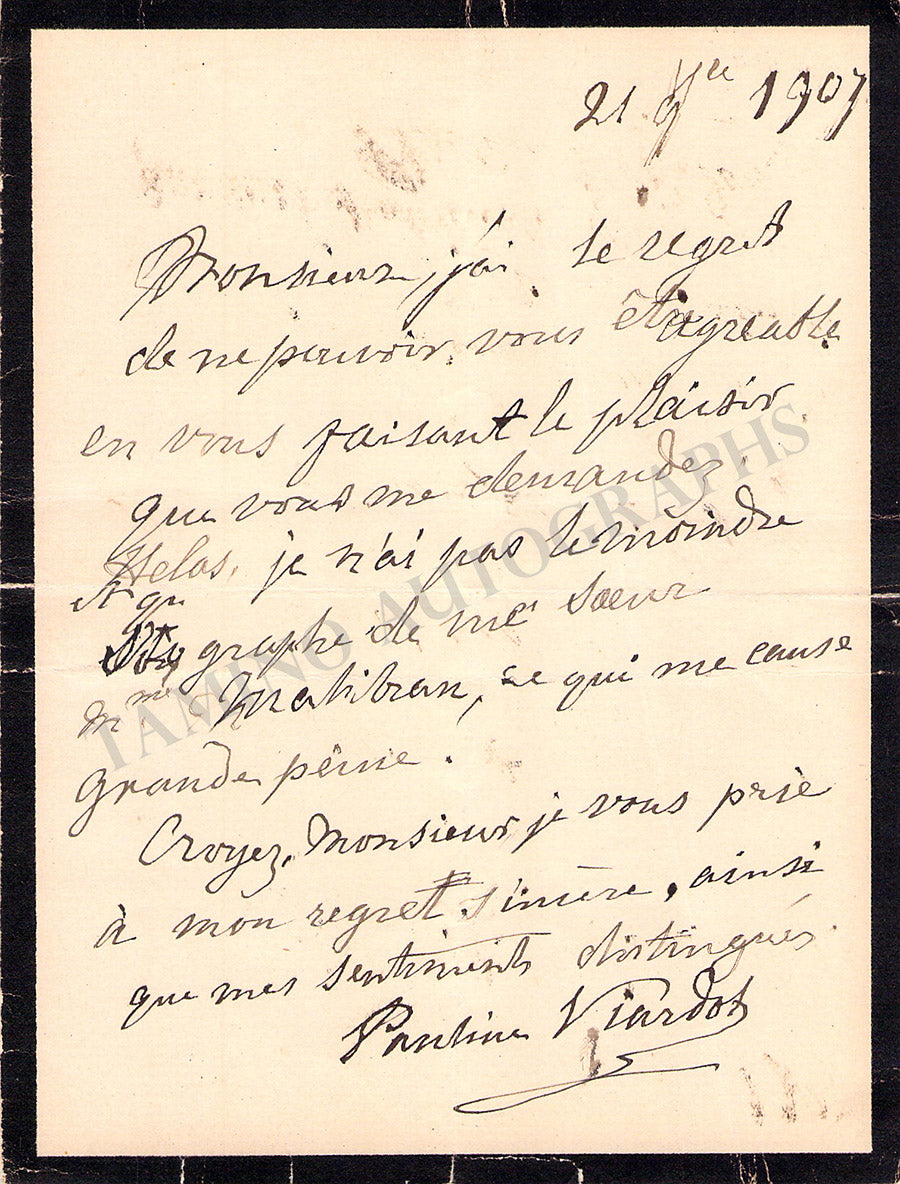 21 9bre 1907
Monsieur, j'ai le regret
de ne pouvoir vous être agréable
en vous faisant le plaisir
que vous me demandez.
Helas, je n'ai pas le moindre
graphe de ma sœur
Mme Malibran, ce qui me cause
grande peine.
Croyez, Monsieur, je vous prie
à mon regret sincère, ainsi
que mes sentiments distingués
Pauline Viardot
TAMINO AUTOGRAPHS